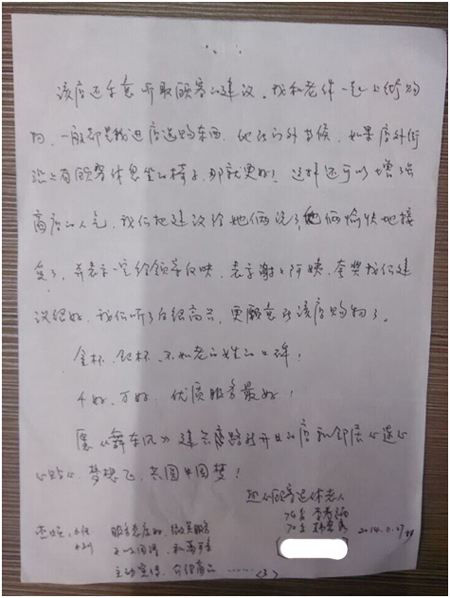 该店还乐意听取顾客的建议，我和老伴一起上街购
物，一般都是我进店选购东西，他在门外等候，如果店外街
沿上有顾客休息坐的椅子，那就更好！这样还可以增强
商店的人气，我们把建议给她俩说了，她俩愉快地接
受了，并表示一定给领导反映，表示谢谢阿姨，夸奖我们建
议很好，我们听了后很高兴，更愿意到该店购物了。
金杯、银杯、不如老百姓的口碑！
千好、万好、优质服务最好！
愿《舞东风》建
路新开业的店和邻居心连心
心贴心，梦想飞，共圆中国梦！
顾客退休老人
76岁
70岁
2014.
服务态度好，微笑服务
主动宣传，介绍商品……